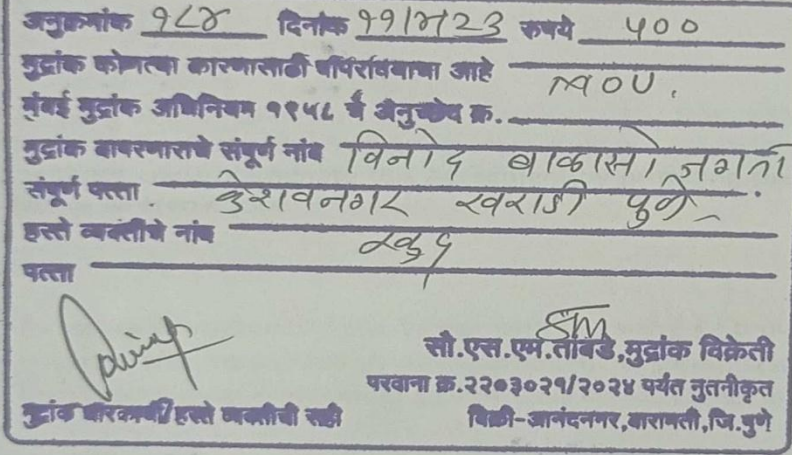 अनुक्रमांक १८४ दिनांक ११/४/२३ रुपये ५००
मुद्रांक कोणत्या कारणासाठी वापरावयाचा आहे MOU.
मुंबई मुद्रांक अधिनियम १९५८ चे अनुच्छेद क्र.
मुद्रांक वापरणाराचे संपूर्ण नांव विनोद बाळासो जगताप
संपूर्ण पत्ता केशवनगर खराडी पुणे
हस्ते व्यक्तीचे नांव खुद्द
पत्ता
सौ.एस.एम.तावडे,मुद्रांक विक्रेती
परवाना क्र.२२०३०२१/२०२४ पर्यंत नुतनीकृत
मुद्रांक धारकाची/हस्ते व्यक्तीची सही विक्री-आनंदनगर,बारामती,जि.पुणे